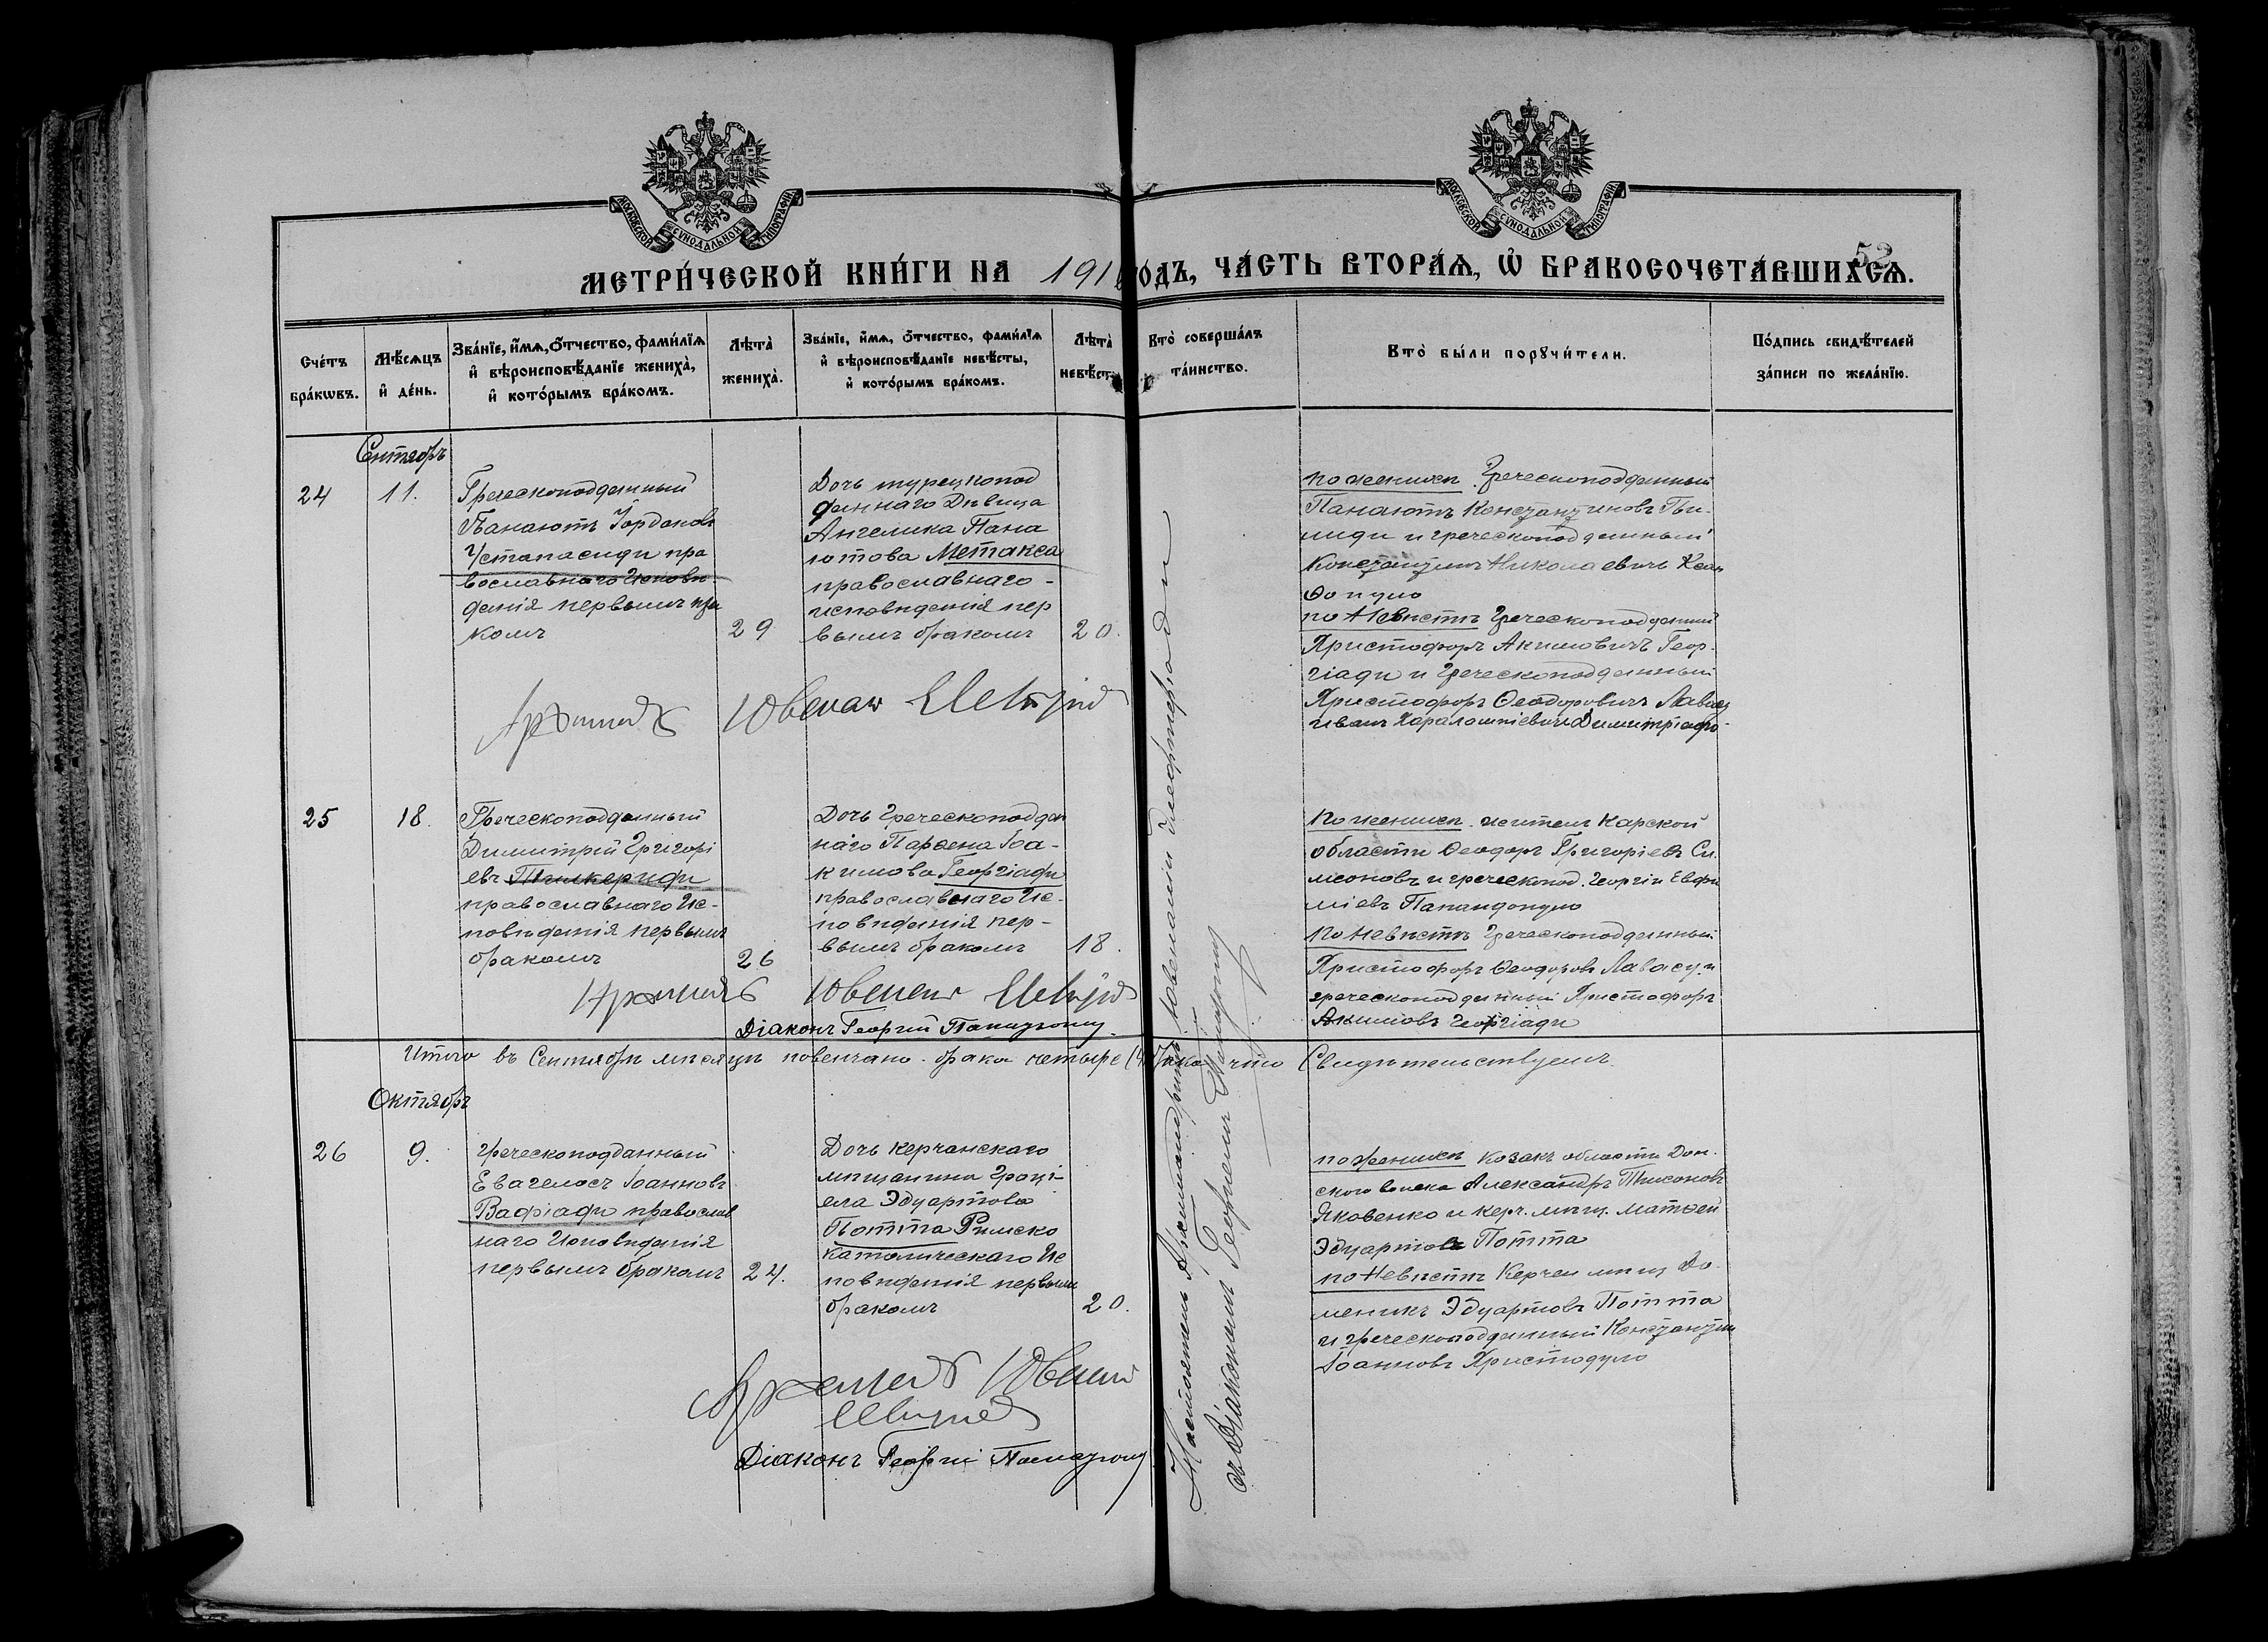 МОСКОВСКОЙ СѴНОДАЛЬНОЙ ТИПОГРАФІИ
МОСКОВСКОЙ СѴНОДАЛЬНОЙ ТИПОГРАФІИ
52
МЕТРИ́ЧЕСКОЙ КНИ́ГИ НА 191 ГОДЪ, ЧА́СТЬ ВТОРА́Ѧ, Ѡ҆ БРАКОСОЧЕТА́ВШИХСѦ.
Сче́тъ бра́кѡвъ.
Мѣ́сѧцъ и҆ де́нь.
Зва́нїе, и҆́мѧ, ѻ҆́тчество, фами́лїѧ и҆ вѣроисповѣ́данїе жениха̀, и҆ кото́рымъ бра́комъ.
Лѣта̀ жениха̀.
Зва́нїе, и҆́мѧ, ѻ҆́тчество, фами́лїѧ и҆ вѣроисповѣ́данїе невѣ́сты, и҆ кото́рымъ бра́комъ.
Лѣта̀ невѣ́ст
Кто̀ соверша́лъ та́инство.
Кто̀ бы́ли порꙋчи́тели.
По́дпись свидѣ́телей за́писи по жела́нїю.
Сентябрь
24
11.
Греческоподданный
Панаіотъ Іордановъ
пра
вославнаго Исповѣ
данія первымъ бра
комъ
29
Дочь турецкопод
даннаго Дѣвица
Ангелика Пана
іотова Метакса
православнаго
исповѣданія пер
вымъ бракомъ
20.
по женихѣ. Греческоподданный
Панаіотъ Константиновъ
и греческоподданный
Константинъ Николаевичъ
по Невѣстѣ Греческоподданный
Христофоръ Акимовичъ Геор-
гіади и Греческоподданный
Христофоръ Ѳеодоровичъ
Иванъ Харалампіевичъ
Ювенал
25
18.
Греческоподданный
Димитрій Григорі
евъ
православнаго Ис-
повѣданія первымъ
бракомъ
26
Дочь Греческоподдан
наго Парѳена Іоа-
кимова Георгіади
православнаго Ис-
повѣданія пер-
вымъ бракомъ
18.
По женихѣ. житель Карской
области Ѳеодоръ Григоріевъ Си
меоновъ и греческопод. Георгій Евфи
міевъ Папандопуло
По Невѣстѣ Греческоподданный
Христофоръ Ѳеодоровъ Лавасу и
греческоподданный Христофоръ
Акимовъ Георгіади
Діаконъ Георгій
Итого въ Сентябрѣ мѣсяцѣ повенчано брака четыре (4) что Свидѣтельствуемъ
Октябрь
26
9.
Греческоподданный
Евагелосъ Іоанновъ
Вафіади православ
наго Исповѣданія
первымъ бракомъ
24.
Дочь Керчанскаго
мѣщанина Граці-
ела Эдуартова
Потта Римско
католическаго Ис
повѣданія первымъ
бракомъ
20.
по женихѣ Козакъ области Дон-
ского войска Александръ
Яковенко и керч. мѣщ. Матѳей
Эдуартовъ Потта
по Невѣстѣ Керчен мѣщ До-
меникъ Эдуартовъ Потта
и греческоподданный Константинъ
Іоанновъ Христодуло
Діаконъ Георгій
Настоятель Архимандритъ
съ Діакономъ Георгіемъ